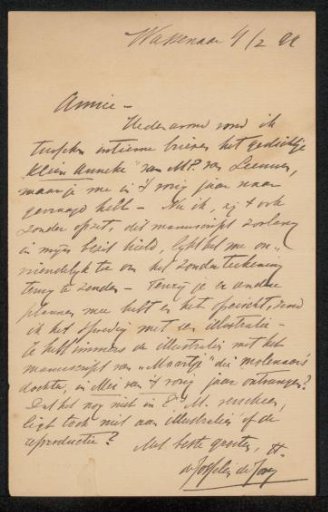 Wassenaar 4/2 99
Annie —
Hedenavond vond ik
tusschen intieme brieven het gedichtje
"Klein Anneke" van M.P. van
waar je me in 't vorig jaar naar
gevraagd hebt — Nu ik, zij 't ook
zonder opzet, dit manuscript zoolang
in mijn bezit hield, lijkt het me on-
vriendelijk te om het zonder teekening
terug te zenden — Tenzij je er andere
plannen mee hebt en het verwacht, zend
ik het spoedig met een illustratie —
Je hebt immers de illustratie met het
manuscript van "Maartje" die molenaar's
dochter, in Mei van 't vorig jaar ontvangen?
Dat het nog niet in E. M. verscheen,
ligt toch niet aan illustratie of de
reproductie?
Met beste groeten, tt.
de Josselin de Jong